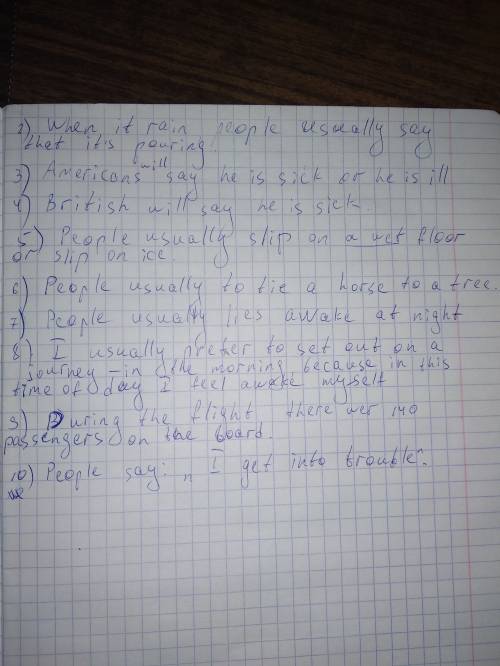 2) When it rain people usually say
that it's pouring!
3) Americans will say he is sick or he is ill
4) British will say he is sick.
5) People usually slip on a wet floor
or slip on ice.
6) People usually to tie a horse to a tree.
7) People usually lies awake at night
8) I usually prefer to set out on a
journey - in the morning because in this
time of day I feel awake myself
9) During the flight there wer 140
passengers on the board.
10) People say: „ I get into trouble".